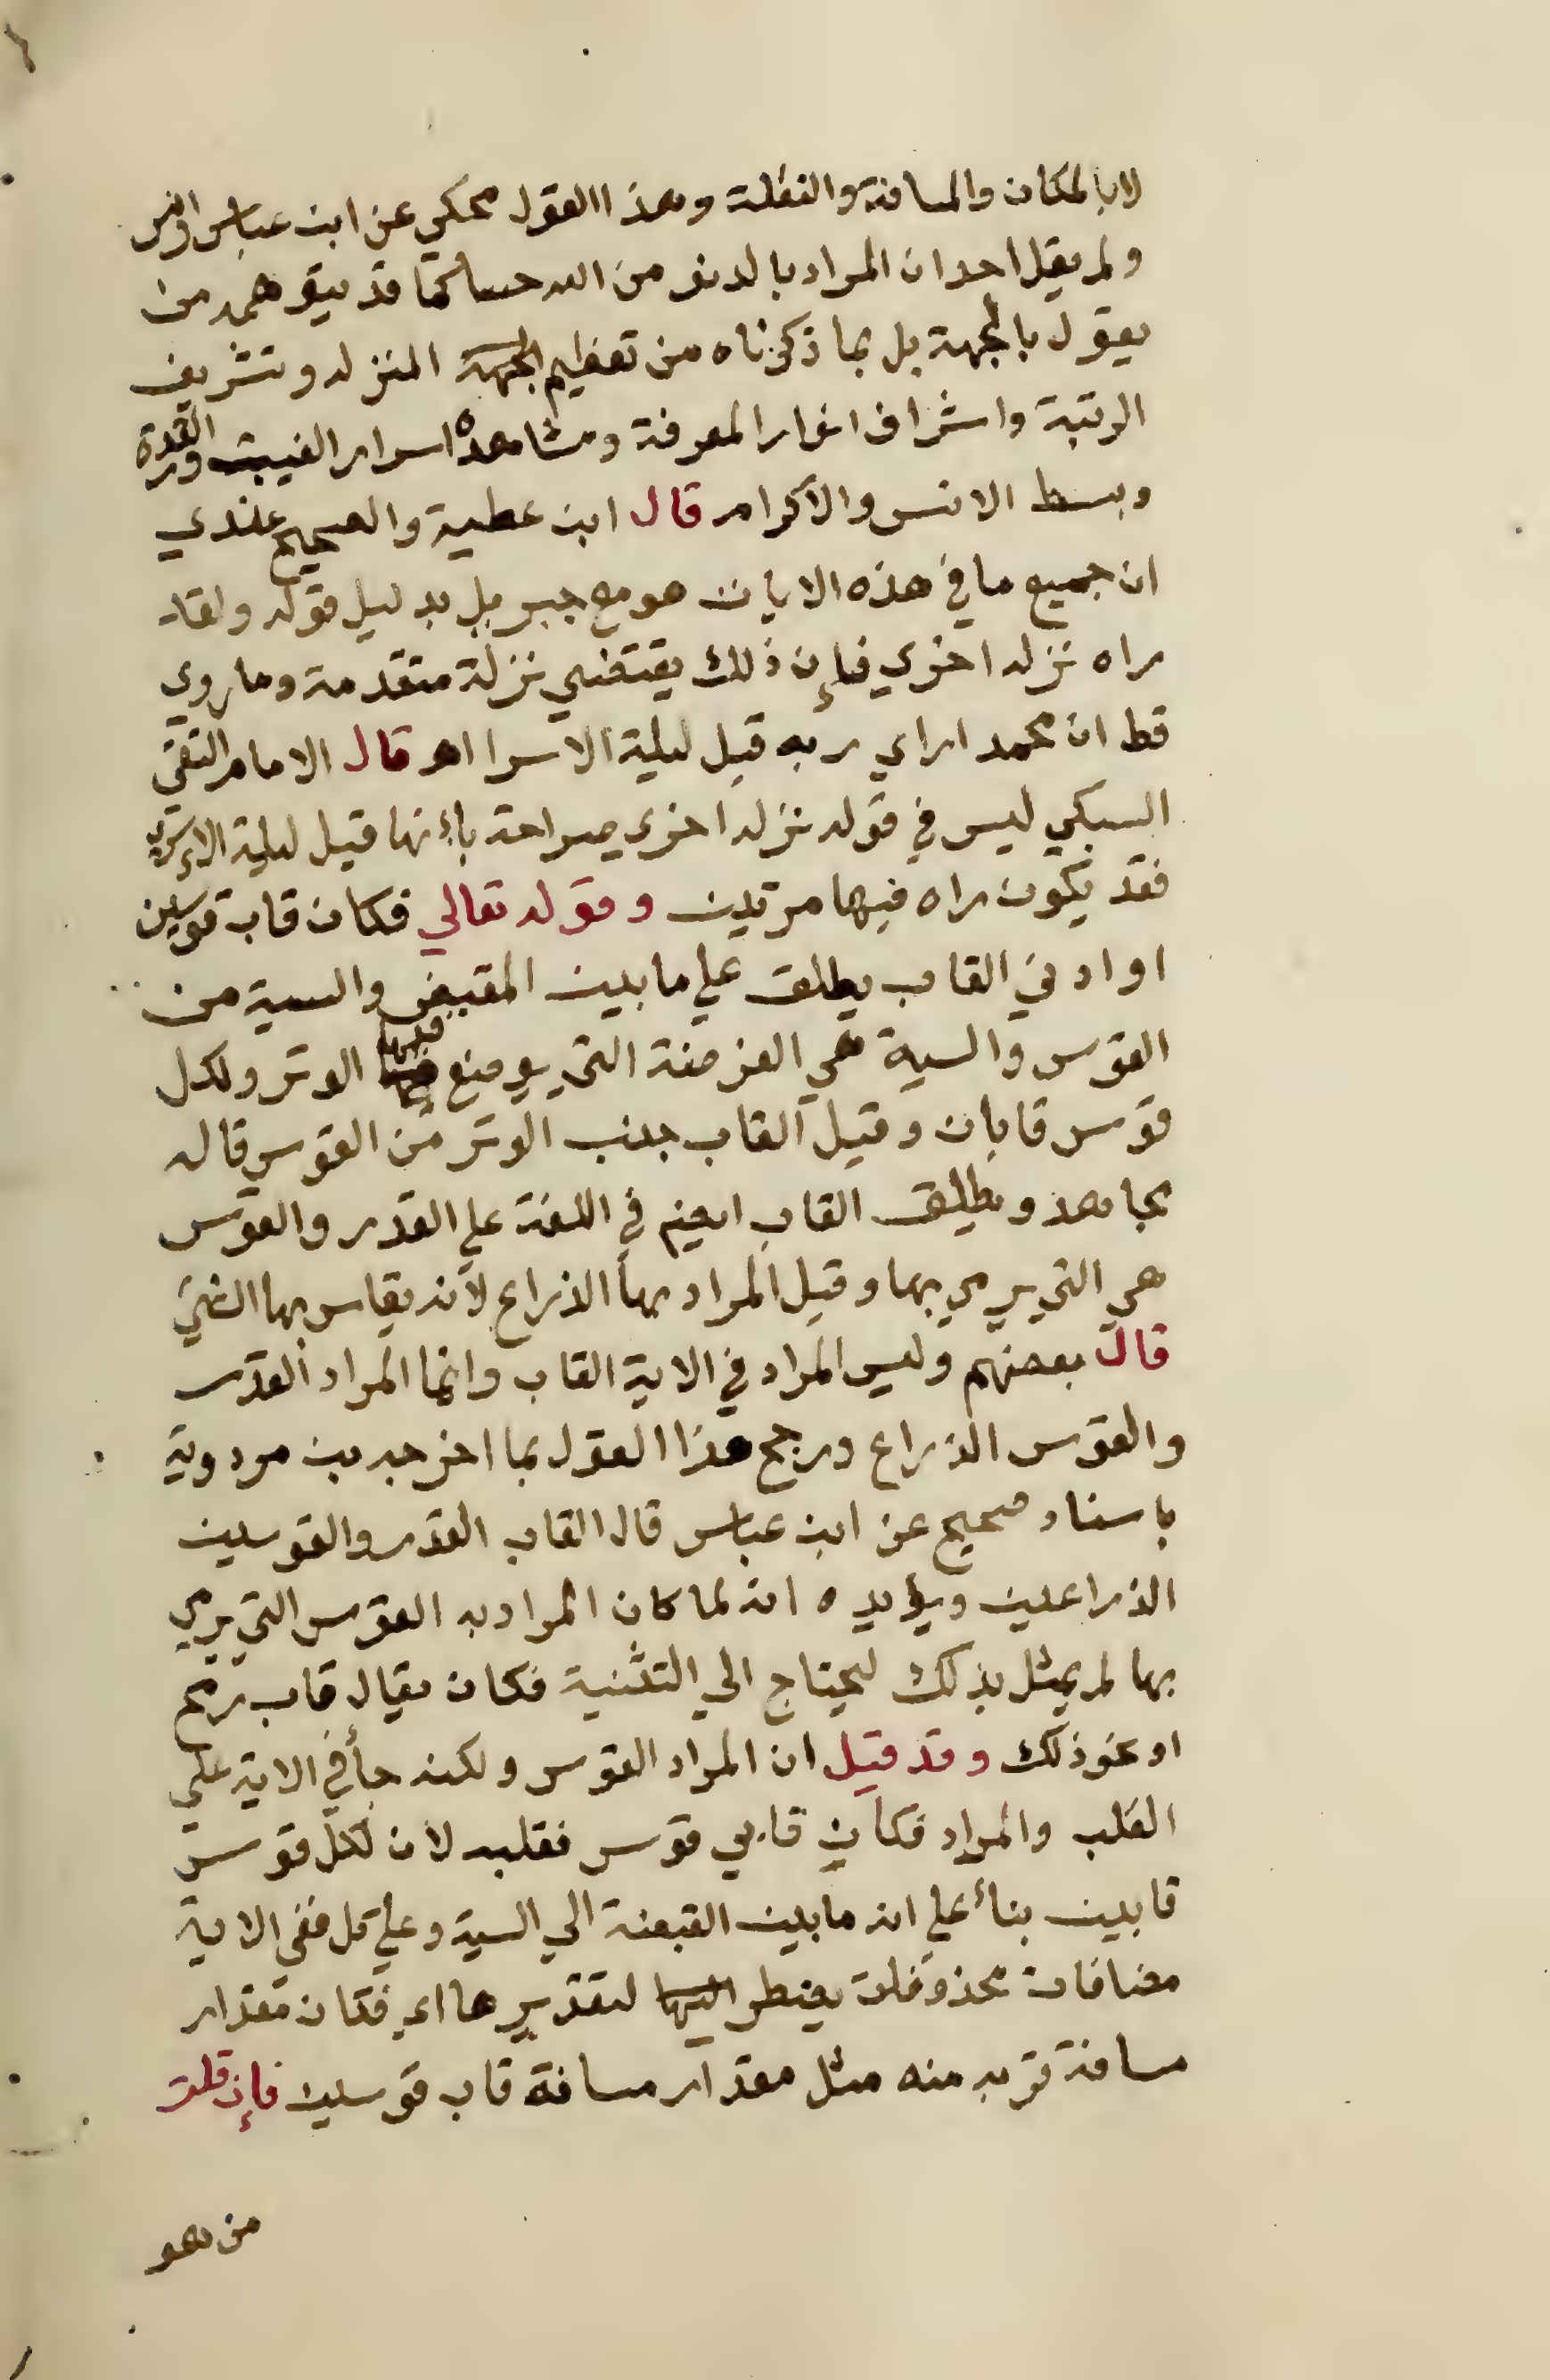 لا بالمكان والمسافة والنقلة وهذا القول محكي عن ابن عباس وانس
ولم يقل احد ان المراد بالدنو من الله حسا كما قد يتوهمه من
يقول بالجهة بل بما ذكرناه من تعظيم الجهة المنزله وتشريف
الرتبة واشراف انوار المعرفة ومشاهدة اسرار الغيب والقدرة
وبسط الانس والاكرام قال ابن عطية والصحيح عندي
ان جميع ما في هذه الايات هو مع جبريل بدليل قوله ولقد
راه نزله اخري فإن ذلك يقتضي نزلة متقدمة وما روي
قط ان محمدا راي ربه قبل ليلة الاسرا اهـ قال الامام التقي
السبكي ليس في قوله نزله اخرى صراحة بإنها قبل ليلة الإسرا
فقد يكون راه فيها مرتين وقوله تعالي فكان قاب قوسين
او ادني القاب يطلق علي ما بين المقبض والسية من
القوس والسية هي الفرضة التي يوضع فيها الوتر ولكل
قوس قابان وقيل القاب جنب الوتر من القوس قاله
مجاهد ويطلق القاب ايضا في اللغة علي القدر والقوس
هي التي يرمي بها وقيل المراد بها الذراع لانه يقاس بها الشئ
قال بعضهم وليس المراد في الاية القاب وانما المراد القدر
والقوس الذراع ورجح هذا القول بما اخرجه بن مردوية
باسناد صحيح عن ابن عباس قال القاب القدر والقوسين
الذراعين ويؤيده انه لما كان المراد به القوس التي يرمي
بها لم يمثل بذلك ليحتاج الي التثنية فكان يقال قاب رمح
او نحو ذلك وقد قيل ان المراد القوس ولكنه جأ في الاية علي
القلب والمراد فكان قابي قوس فقلبه لان لكل قوس
قابين بنأ علي انه ما بين القبضة الي السية وعلي كل ففي الاية
مضافات محذوفات يضطر اليها لتقديرها اي فكان مقدار
مسافة قربه منه مثل مقدار مسافة قاب قوسين فإن قلت
من هو